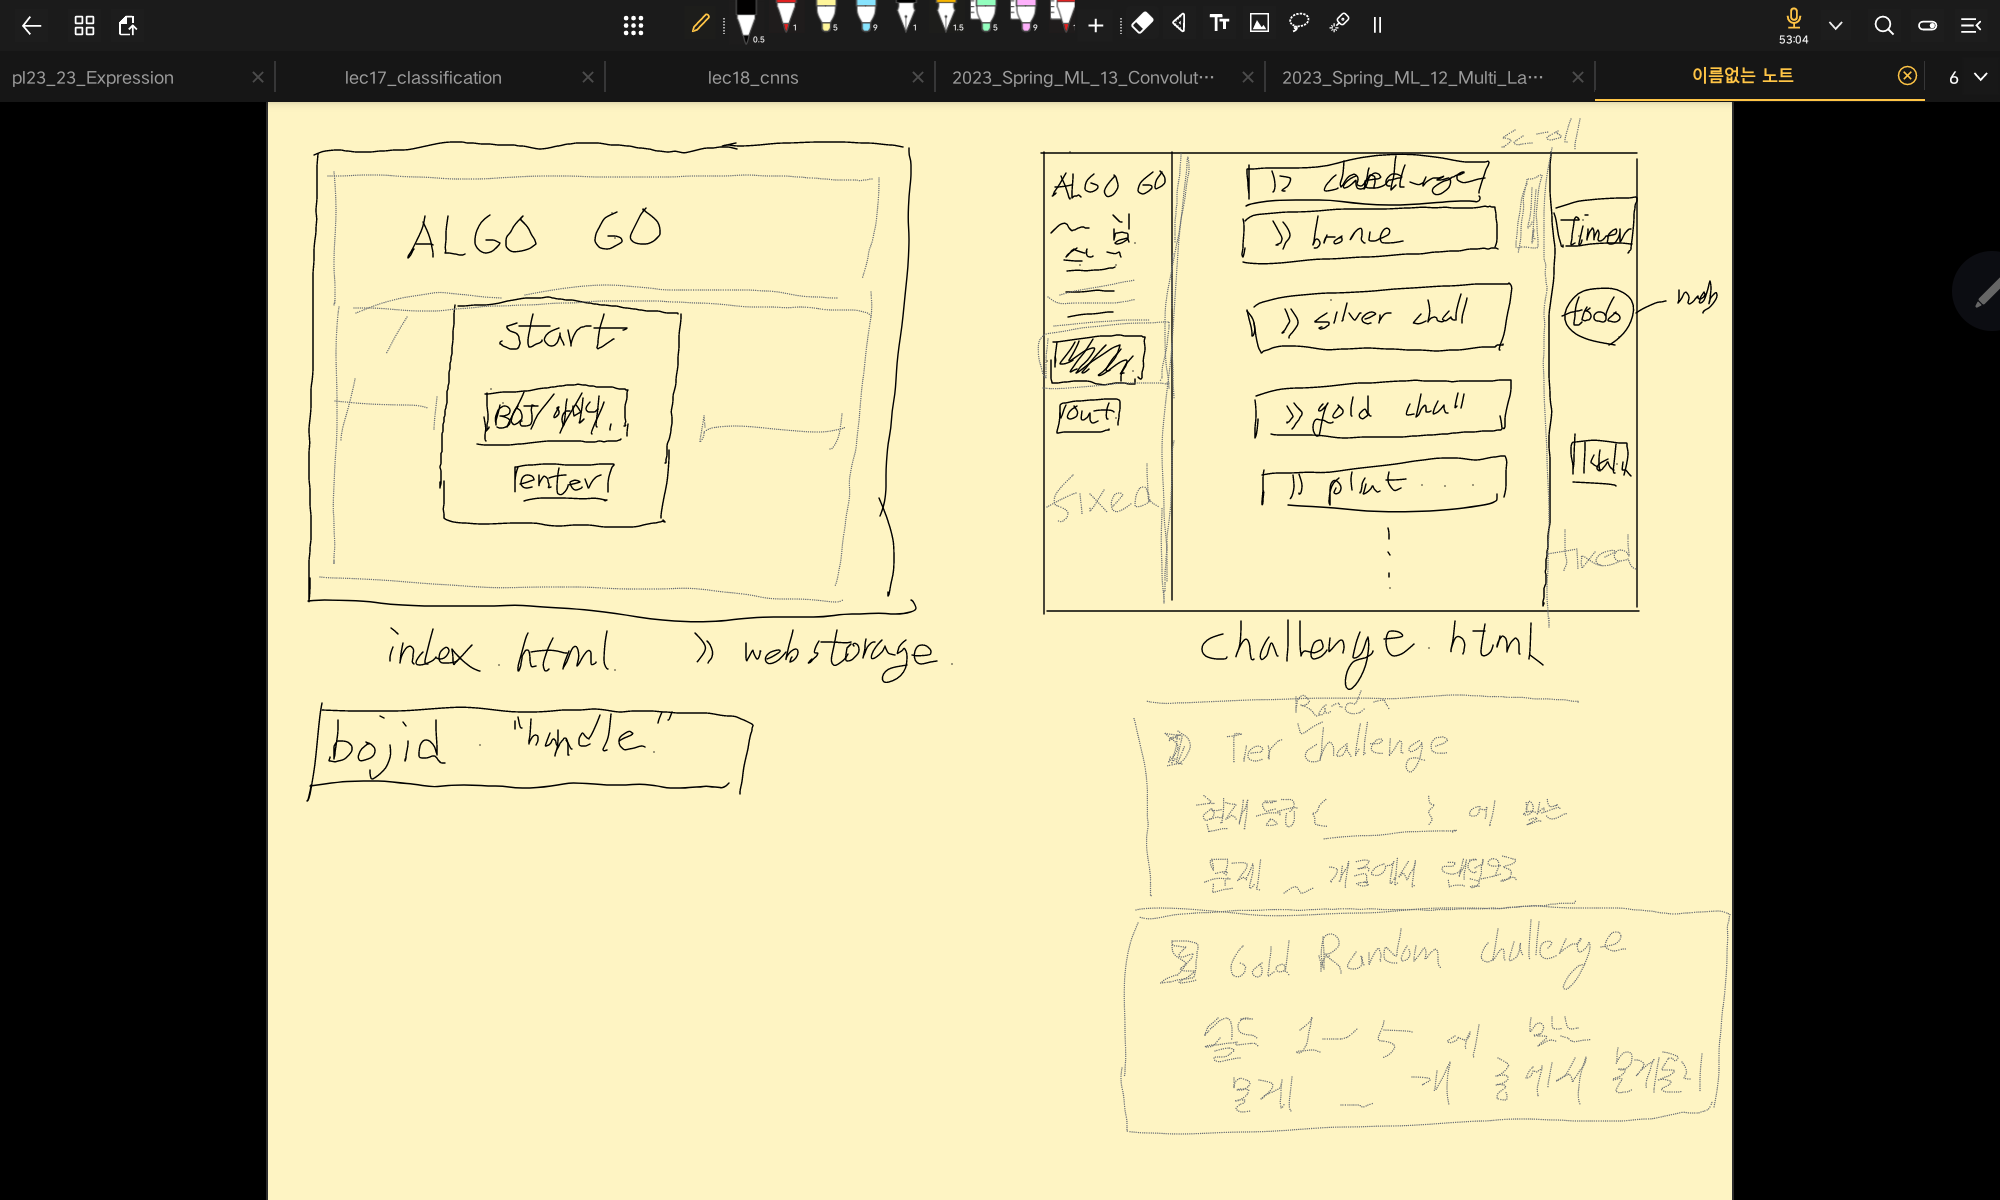 0.5
1
5
9
1
1.5
5
9
Tт
53:04
pl23_23_Expression
lec17_classification
lec18_cnns
2023_Spring_ML_13_Convolut···
2023_Spring_ML_12_Multi_La···
이름없는 노트
6
ALGO GO
start
enter
index.html >> webstorage.
bojid "handle"
scroll
ALGO GO
out
fixed
>> bronce
>> silver chall
>> gold chall
>> plat ...
Timer
todo
fixed
challenge.html
Tier challenge
현재 등급 { } 에 맞는
문제 ~ 개중에서 랜덤으로
Gold Random challenge
골드 1~5 에 맞는
문제 ~ 개 중에서 문제풀기